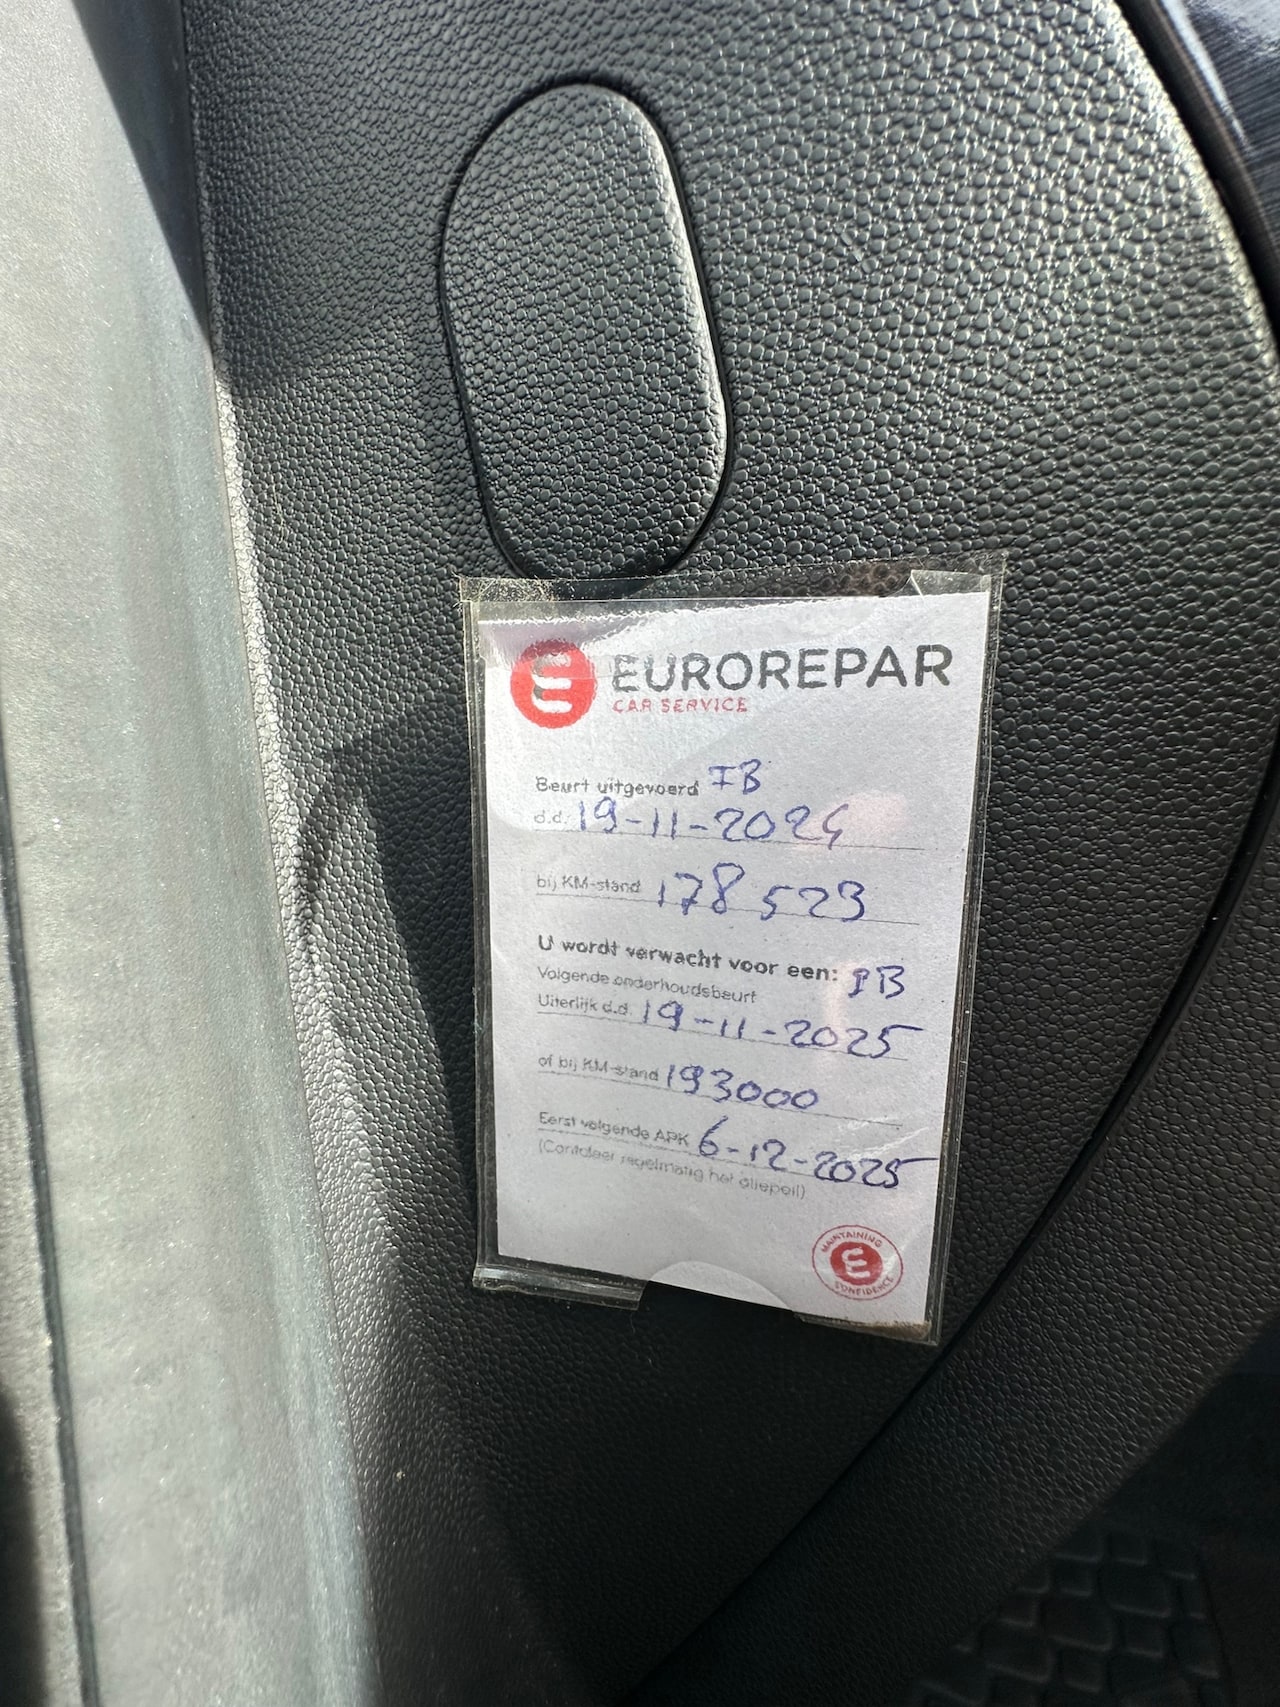 EUROREPAR
CAR SERVICE
Beurt uitgevoerd IB
d.d. 19-11-2024
bij KM-stand 178 523
U wordt verwacht voor een: PB
Volgende onderhoudsbeurt
Uiterlijk d.d. 19-11-2025
of bij KM-stand 193000
Eerst volgende APK 6-12-2025
(Controleer regelmatig het oliepeil)
MAINTAINING
CONFIDENCE